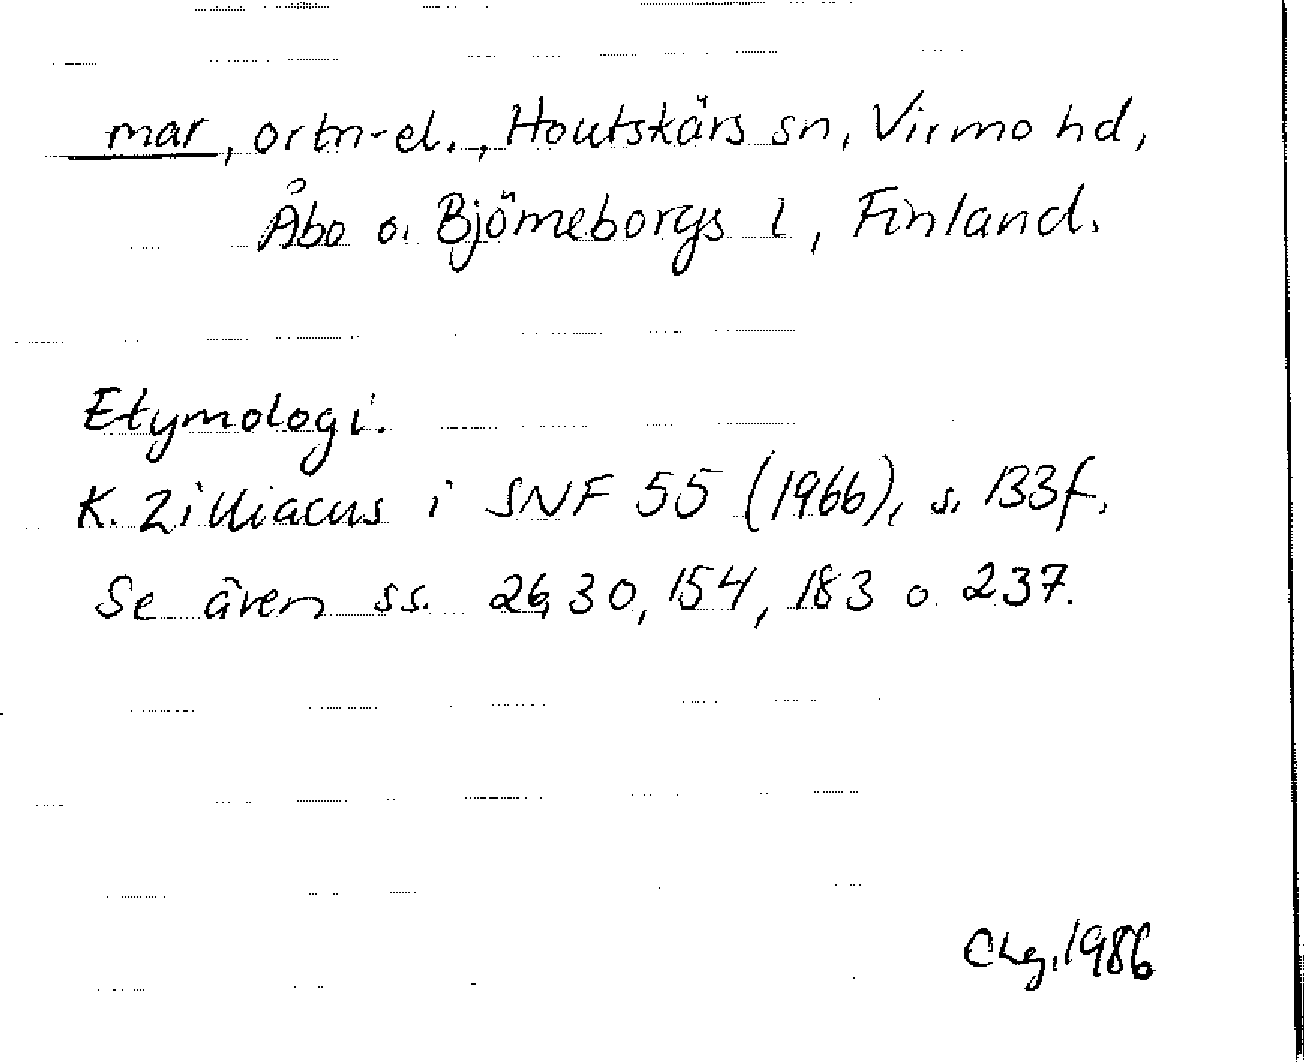 mar, ortn-el., Houtskärs sn, Virmo hd,
Åbo o. Björneborgs l, Finland.
Etymologi.
K. Zilliacus i SNF 55 (1966), s. 133f.
Se även ss. 26, 30, 154, 183 o. 237.
Chg, 1986